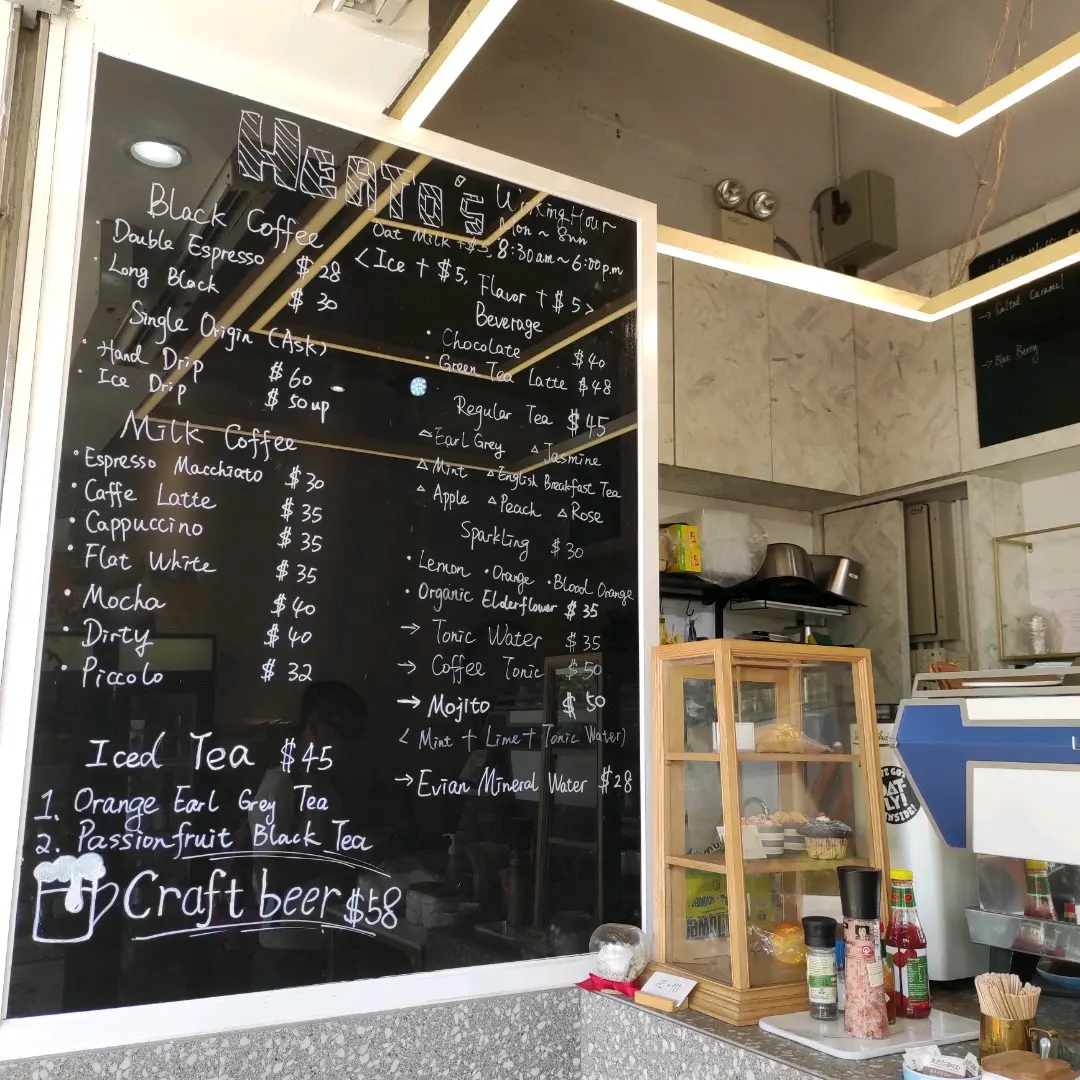 HEATO'S
Working Hour
Mon ~ Sun
8:30am ~ 6:00pm
Black Coffee
· Double Espresso $28
· Long Black $30
Single Origin (Ask)
· Hand Drip $60
· Ice Drip $50up
Milk Coffee
· Espresso Macchiato $30
· Caffe Latte $35
· Cappuccino $35
· Flat White $35
· Mocha $40
· Dirty $40
· Piccolo $32
Iced Tea $45
1. Orange Earl Grey Tea
2. Passionfruit Black Tea
Craft beer $58
Oat Milk +$5,
<Ice + $5, Flavor + $5>
Beverage
· Chocolate $40
· Green Tea Latte $48
Regular Tea $45
△Earl Grey △Jasmine
△Mint △English Breakfast Tea
△Apple △Peach △Rose
Sparkling $30
· Lemon · Orange · Blood Orange
· Organic Elderflower $35
→ Tonic Water $35
→ Coffee Tonic $50
→ Mojito $50
< Mint + Lime + Tonic Water)
→ Evian Mineral Water $28
→ Salted Caramel
→ Blue Berry